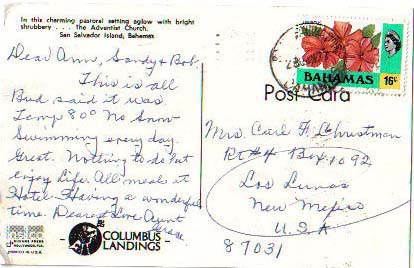 In this charming pastoral setting aglow with bright
shrubbery . . . The Adventist Church.
San Salvador Island, Bahamas
Dear Ann, Sandy & Bob.
This is all
Bud said it was
Temp 80° No Snow
Swimming every day.
Great. Nothing to do but
enjoy Life. All meals at
Hotel. Having a wonderful
time. Dearest Love Aunt
COLUMBUS
LANDINGS
BAHAMAS
16c
Post Card
Mrs. Carl F. Christman
Rt #4 Box 1092
Los Lunas
New Mexico
U.S.A
87031